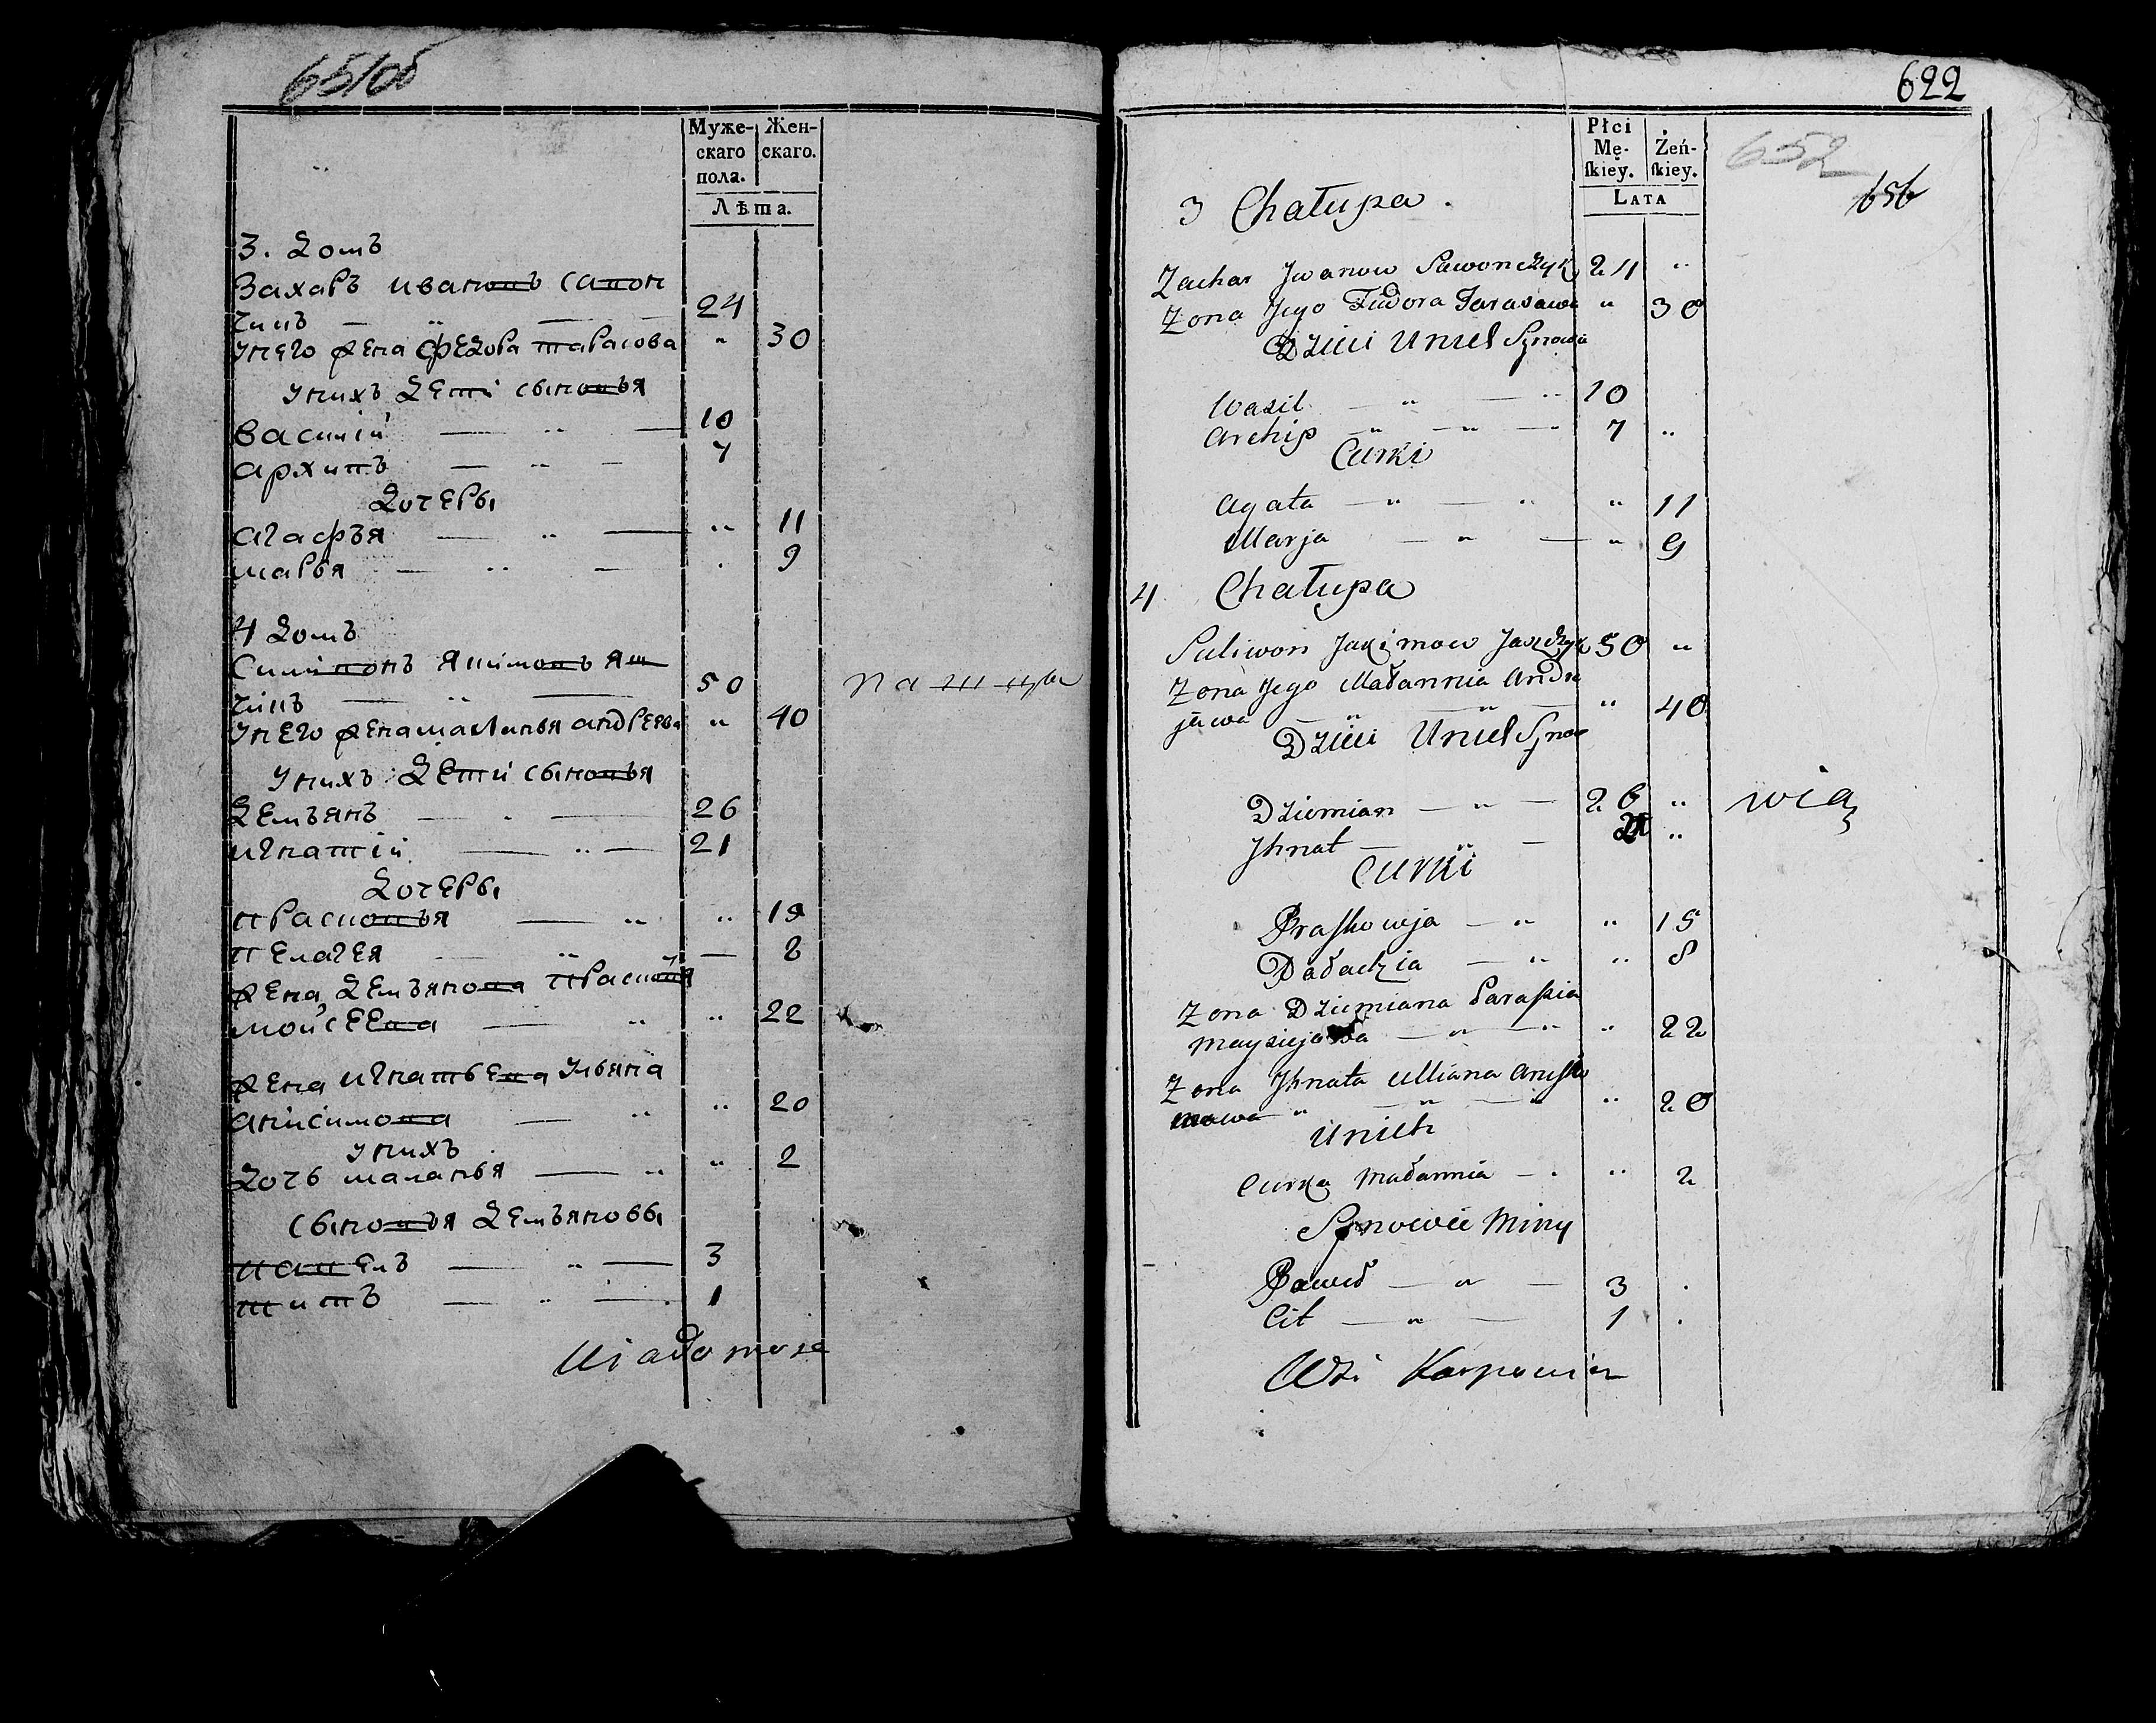 651об
Муже-
скаго
пола.
Жен-
скаго.
Лѣта.
3. Домъ
Захаръ Ивановъ Савон
чикъ — " — 24
У него жена Федора Тарасова " 30
У нихъ дети сыновья
Василій — " — 10
Архипъ — " — 7
Дочеры
Агафья — " — " 11
Марья — " — . 9
4 Домъ
Силивонъ Якимовъ Яш
чикъ — " — 50
У него жена Маланья Андреева " 40
У нихъ дети сыновья
Демьянъ — . — 26
Игнатій — " — 21
Дочеры
Прасковья — " " 15
Пелагея — " — 8
Жена Демьянова Прасковья
Мойсеева — " " 22
Жена Игнатьева Ульяна
Анисимова — " " 20
У нихъ
Дочь Маланья — " " 2
Сыновья Демьяновы
Павелъ — " — 3
Титъ — " — 1
Wiadomosc
622
652
656
Płci
Mę-
ſkiey.
Żeń-
ſkiey.
LATA
3 Chałupa.
Zachar Jwanow Sawonczyk 24 "
Zona Jego Fudora Tarasawa " 30
Dzieci Unich Synowie
Wasil — " — " 10
Archip — " — " 7 "
Curki
Agata — " — " " 11
Marja — " — " 9
4 Chałupa
Saliwon Jakimow Jaszczyk 50 "
Zona Jego Małannia Andre
jewa — " — " — " 40
Dzieci Unich Synow
Dziemian — " — 26 " wie
Jhnat — " — 21 "
Curki
Praſkowja — " " 15
Paładzia — " " 8
Zona Dziemiana Paraſkia
Maysiejowa — " — " " 22
Zona Jhnata Ulliana Aniſi
mowa " — " — " " 20
Unich
Curka Małannia — . " 2
Synowie Miny
Paweł — " — 3 .
Cit — " — 1 .
Wsi Karpowicz